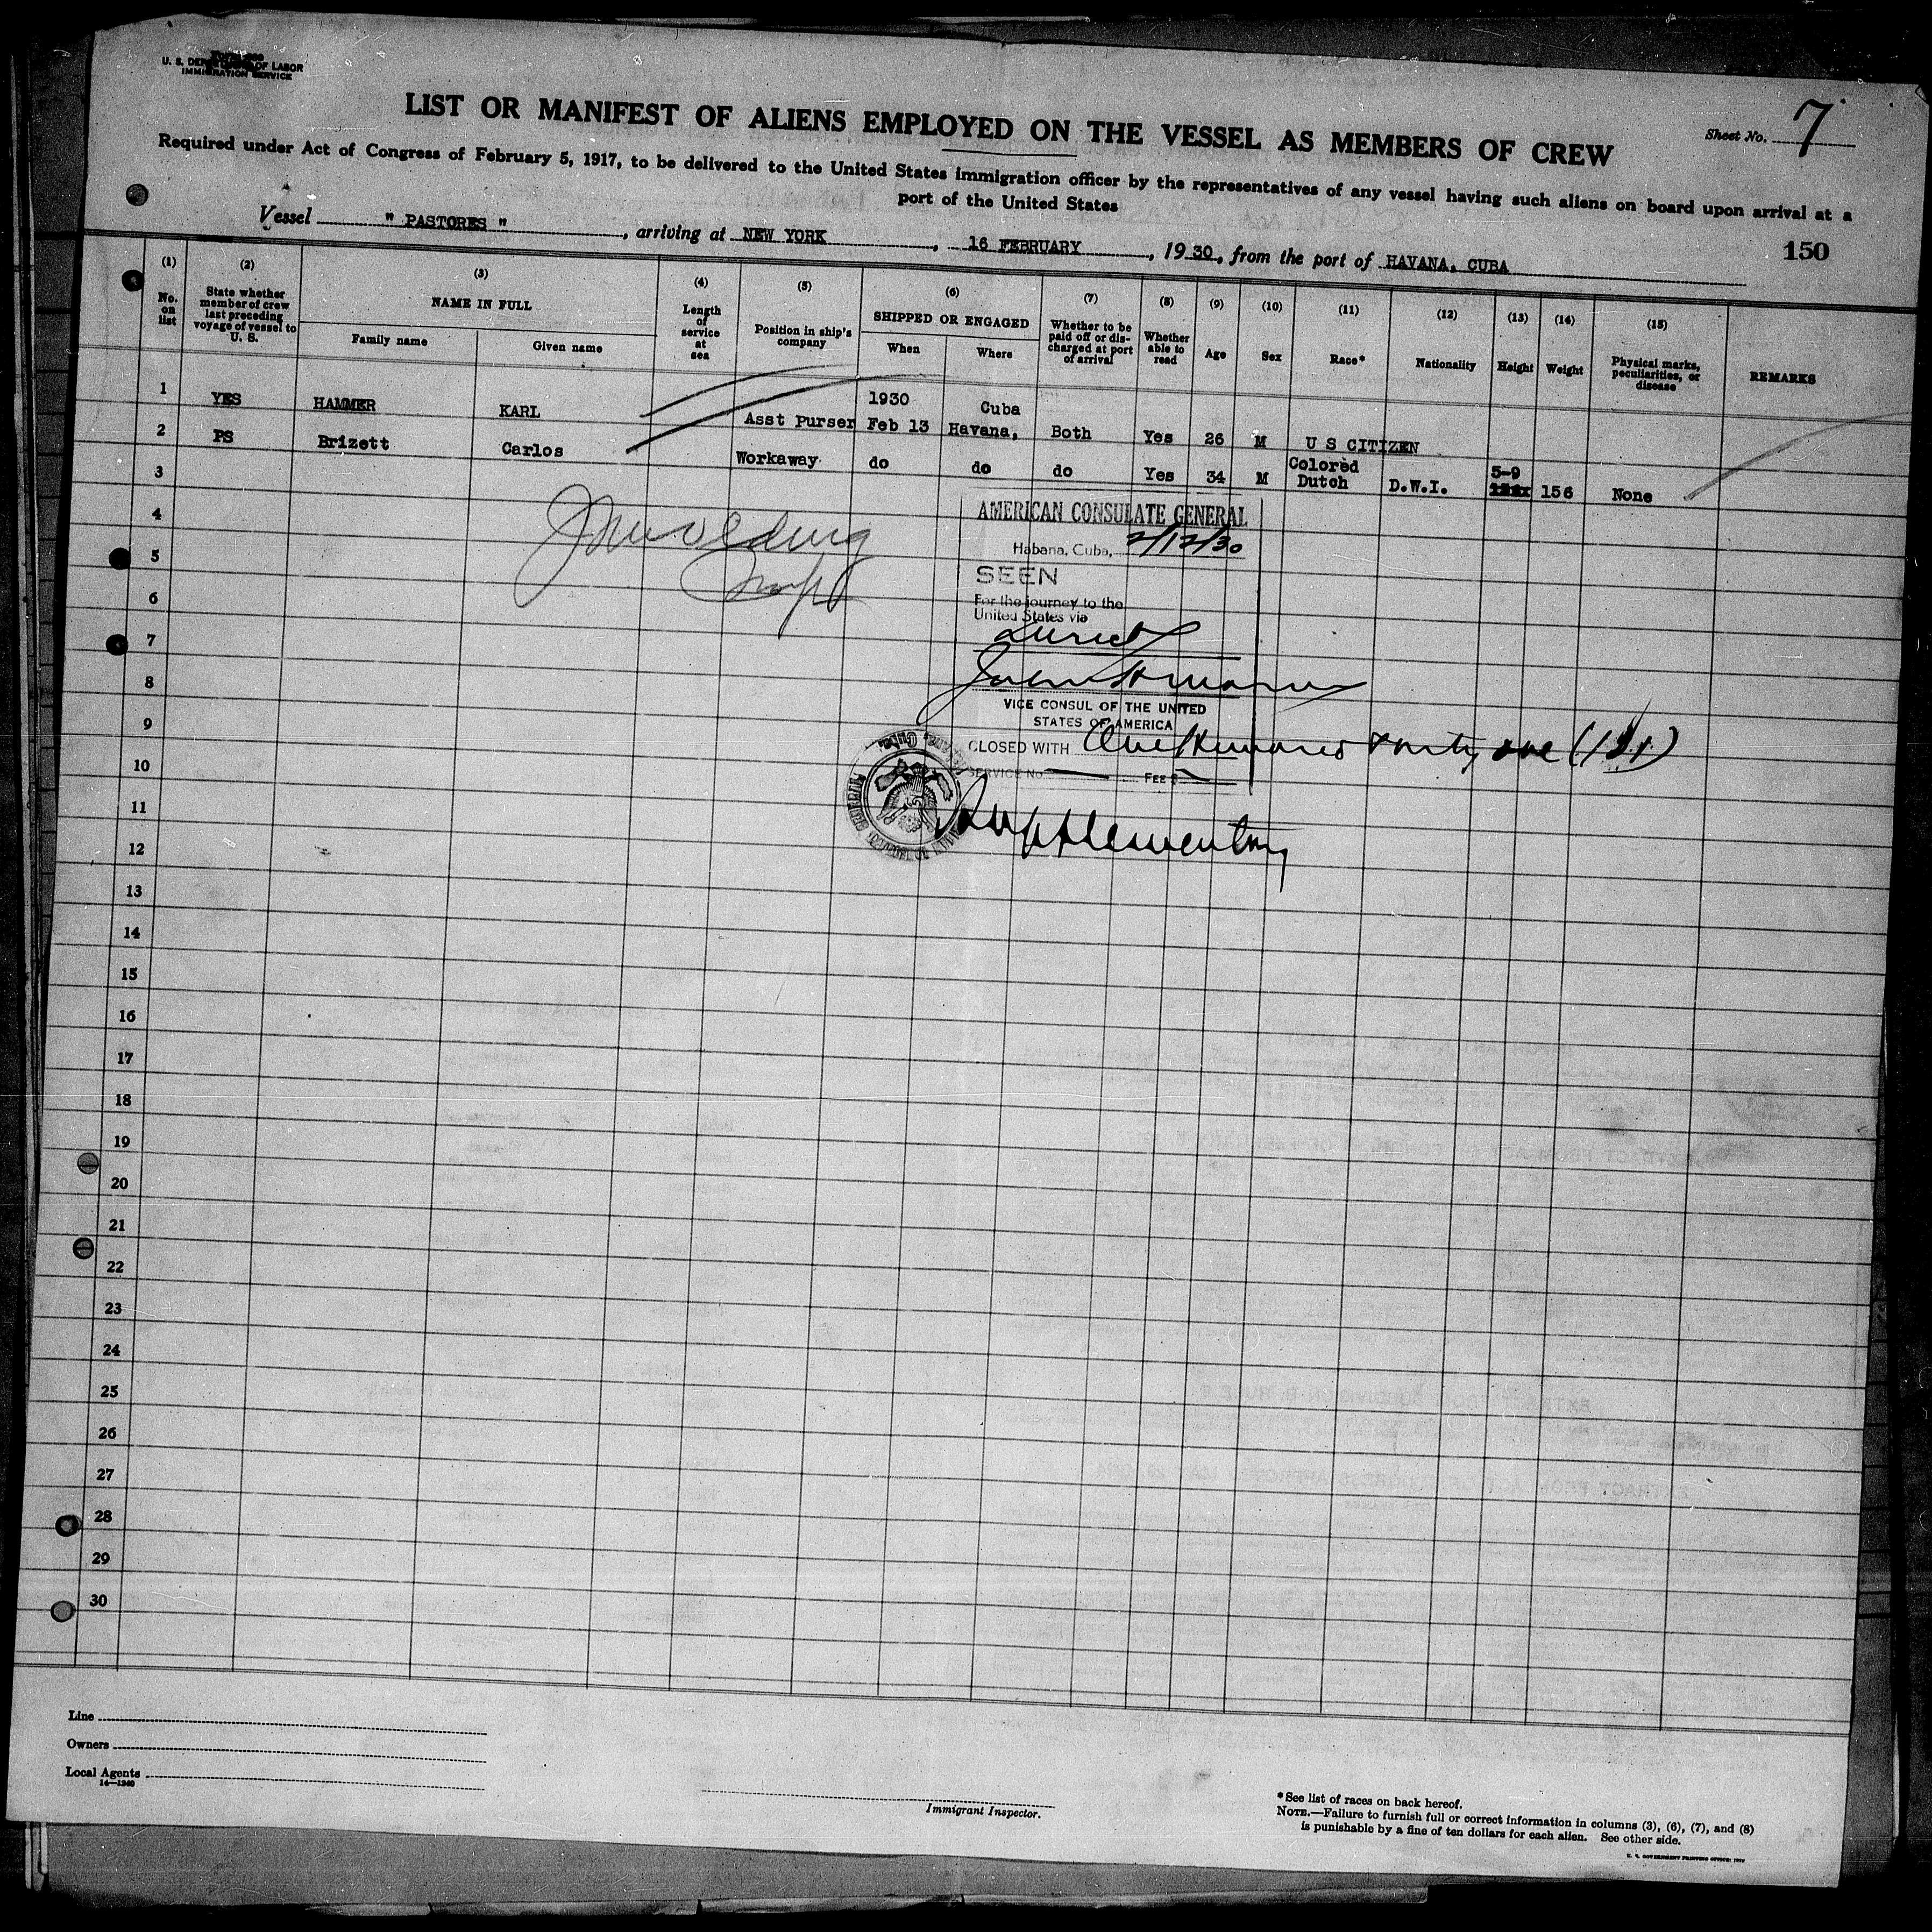 U. S. DEPARTMENT OF LABOR
IMMIGRATION SERVICE
LIST OR MANIFEST OF ALIENS EMPLOYED ON THE VESSEL AS MEMBERS OF CREW
Sheet No. 7
Required under Act of Congress of February 5, 1917, to be delivered to the United States immigration officer by the representatives of any vessel having such aliens on board upon arrival at a
port of the United States
Vessel " PASTORES ", arriving at NEW YORK, 16 FEBRUARY, 1930, from the port of HAVANA, CUBA
150
(1) (2) (3) (4) (5) (6) (7) (8) (9) (10) (11) (12) (13) (14) (15)
No. on list
State whether member of crew last preceding voyage of vessel to U. S.
NAME IN FULL
Family name
Given name
Length of service at sea
Position in ship's company
SHIPPED OR ENGAGED
When
Where
Whether to be paid off or discharged at port of arrival
Whether able to read
Age
Sex
Race*
Nationality
Height
Weight
Physical marks, peculiarities, or disease
REMARKS
1 YES HAMMER KARL Asst Purser 1930 Feb 13 Cuba Havana, Both Yes 26 M U S CITIZEN
2 PS Brizett Carlos Workaway do do do Yes 34 M Colored Dutch D.W.I. 5-9 156 None
3
4
5
6
7
8
9
10
11
12
13
14
15
16
17
18
19
20
21
22
23
24
25
26
27
28
29
30
AMERICAN CONSULATE GENERAL
Habana, Cuba, 2/12/30
SEEN
For the journey to the
United States via
direct
VICE CONSUL OF THE UNITED
STATES OF AMERICA
CLOSED WITH One
SERVICE No. FEE $
Supplementary
Line
Owners
Local Agents
14—1240
Immigrant Inspector.
*See list of races on back hereof.
NOTE.—Failure to furnish full or correct information in columns (3), (6), (7), and (8)
is punishable by a fine of ten dollars for each alien. See other side.